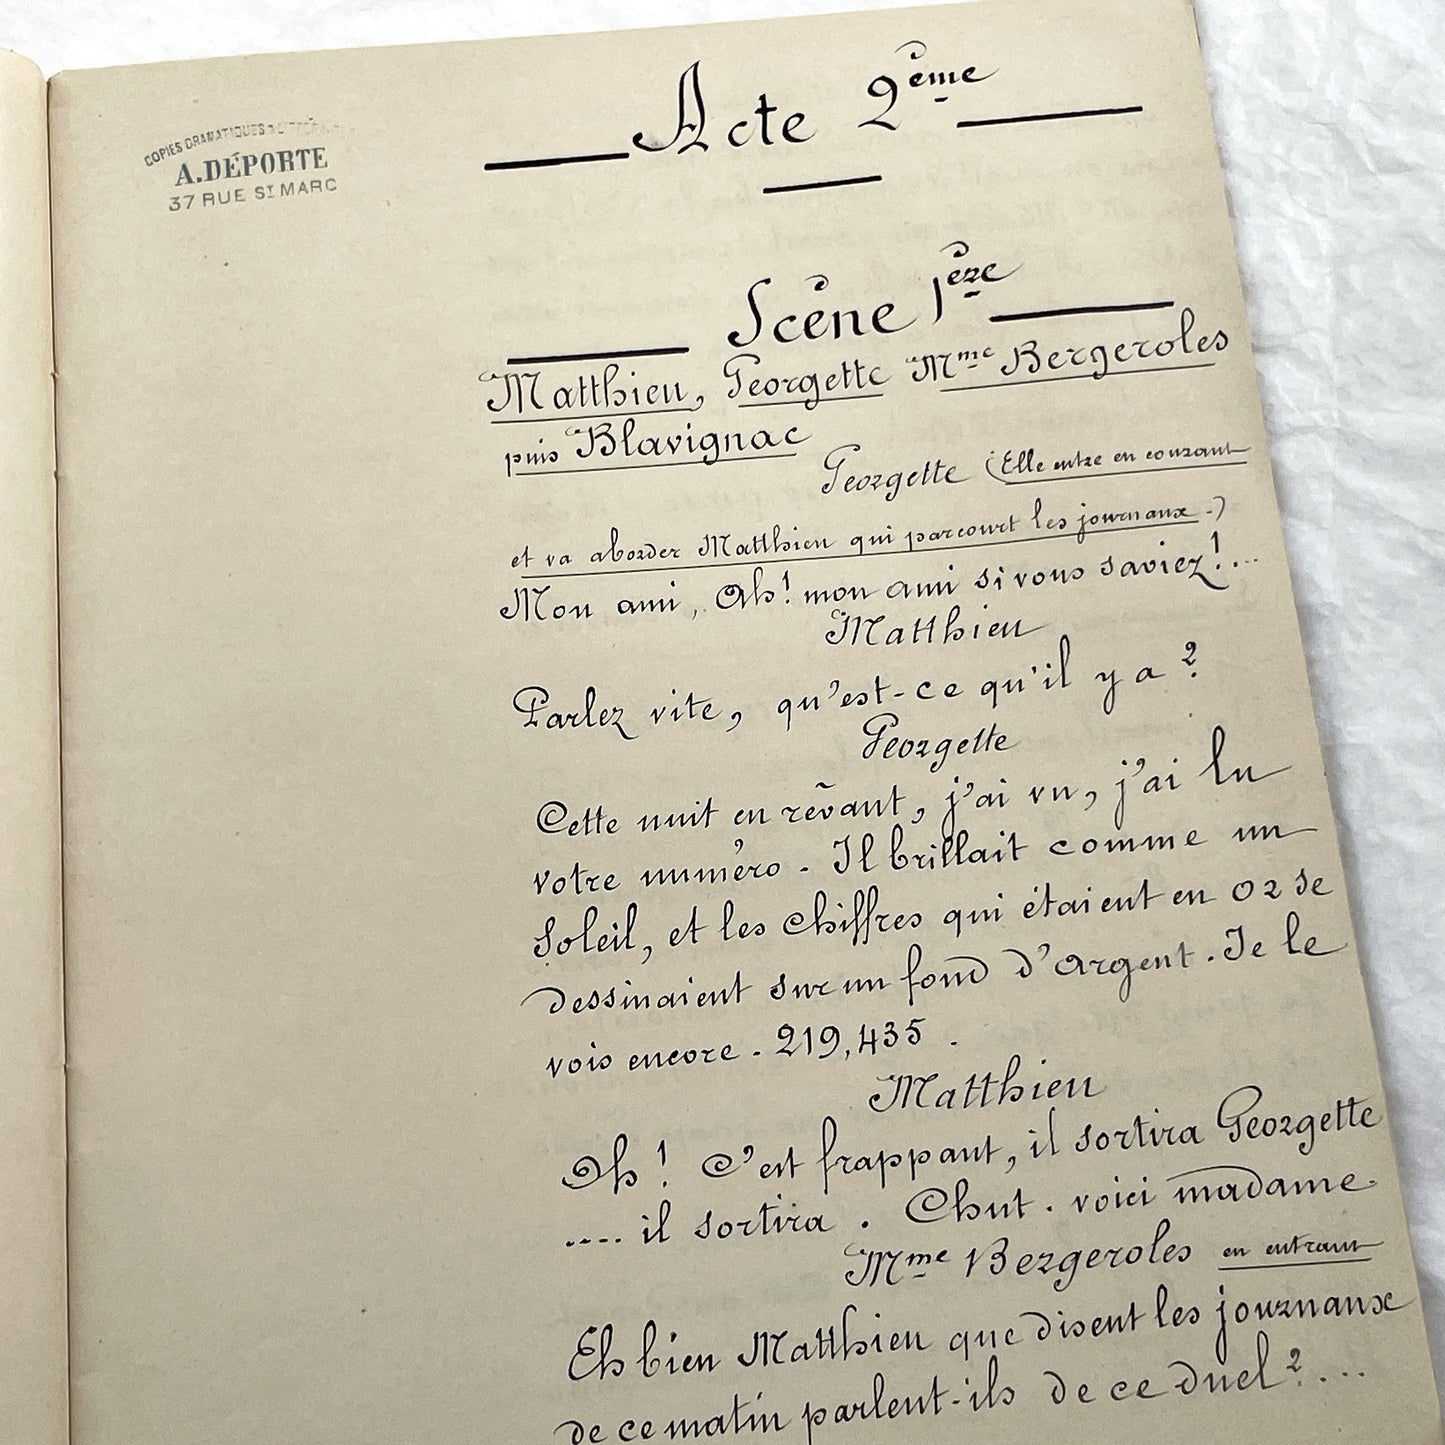 COPIES DRAMATIQUES
A. DÉPORTE
37 RUE ST MARC
Acte 2ème
Scène 1ère
Matthieu, Georgette Mme Bergeroles
puis Blavignac
Georgette (Elle entre en courant
et va aborder Matthieu qui parcourt les journaux.)
Mon ami, Ah! mon ami si vous saviez!...
Matthieu
Parlez vite, qu'est-ce qu'il y a?
Georgette
Cette nuit en rêvant, j'ai vu, j'ai lu
votre numéro. Il brillait comme un
Soleil, et les chiffres qui étaient en or se
dessinaient sur un fond d'argent. Je le
vois encore. 219,435.
Matthieu
Oh! C'est frappant, il sortira Georgette
.... il sortira. Chut. voici madame.
Mme Bergeroles en entrant
Eh bien Matthieu que disent les journaux
de ce matin parlent-ils de ce duel?...